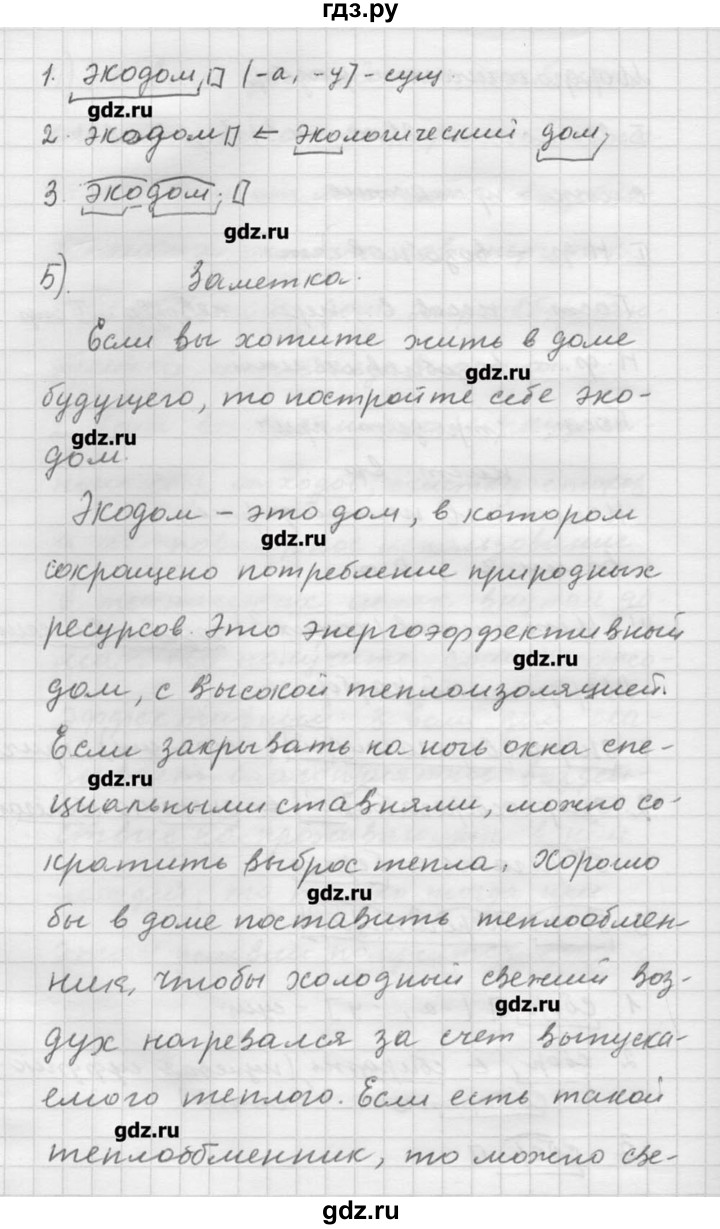 гдз.ру
1. экодом, [-а, -у] - сущ
gdz.ru
2. экодом ← экологический дом,
3. экодом,
gdz.ru
5). Заметка.
Если вы хотите жить в доме
gdz.ru
будущего, то постройте себе эко-
gdz.ru
дом.
Экодом - это дом, в котором
gdz.ru
сокращено потребление природных
ресурсов. Это энергоэффективный
gdz.ru
дом, с высокой теплоизоляцией.
Если закрывать на ночь окна спе-
gdz.ru
циальными ставнями, можно со-
кратить выброс тепла. Хорошо
gdz.ru
бы в доме поставить теплообмен-
ник, чтобы холодный свежий воз-
gdz.ru
дух нагревался за счет выпуска-
емого теплого. Если есть такой
gdz.ru
теплообменник, то можно све-
gdz.ru